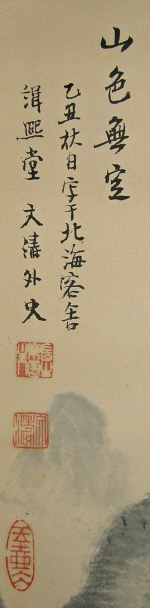 山色無定
乙丑秋日写于北海客舍
緝熙堂 文濤外史